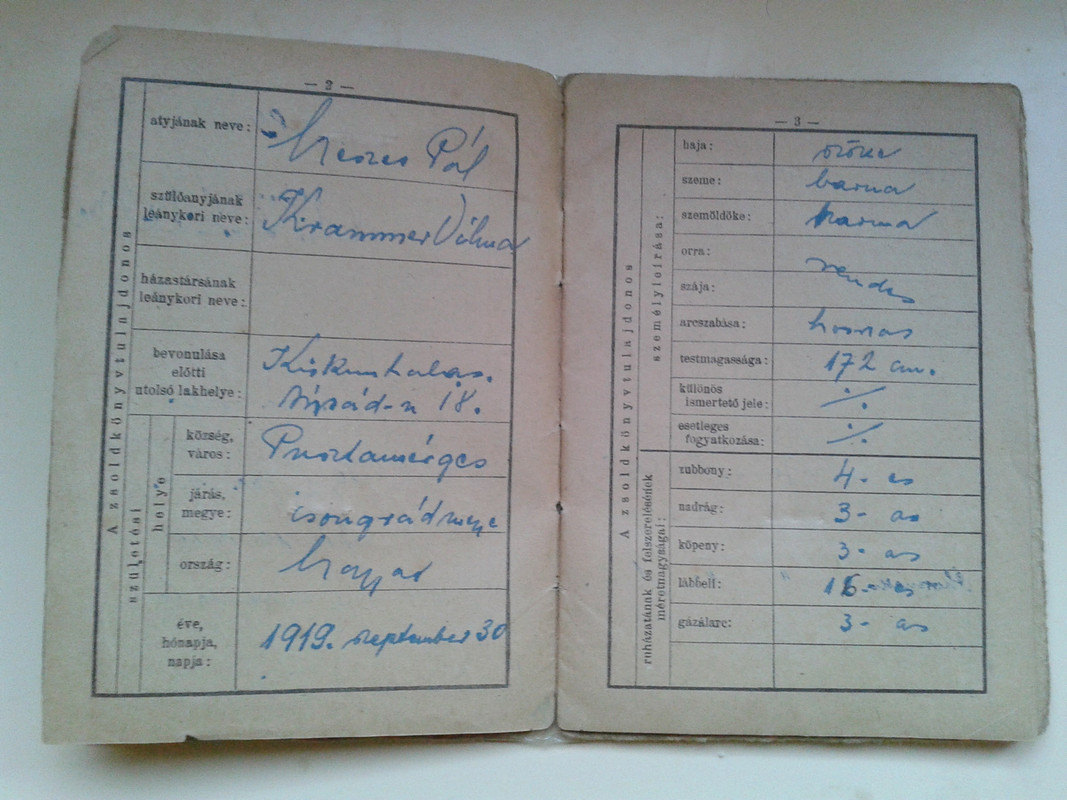 — 2 —
A zsoldkönyvtulajdonos
atyjának neve: Pál
szülőanyjának
leánykori neve: Krammer Vilma
házastársának
leánykori neve:
bevonulása
előtti
utolsó lakhelye: Kiskunhalas.
Árpád-u 18.
születési
helye
község,
város: Pusztamérges
járás,
megye: Csongrád megye
ország: Magyar
éve,
hónapja,
napja: 1919. szeptember 30
— 3 —
A zsoldkönyvtulajdonos
személyleírása:
haja: szőke
szeme: barna
szemöldöke: barna
orra:
rendes
szája:
arcszabása: hosszas
testmagassága: 172 cm.
különös
ismertető jele: ./.
esetleges
fogyatkozása: ./.
ruházatának és felszerelésének
méretnagyságai:
zubbony: 4-es
nadrág: 3-as
köpeny: 3-as
lábbeli: 16-os
gázálarc: 3-as